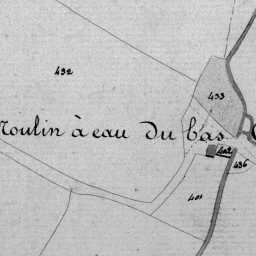 432
433
Moulin à eau du bas
402
436
401